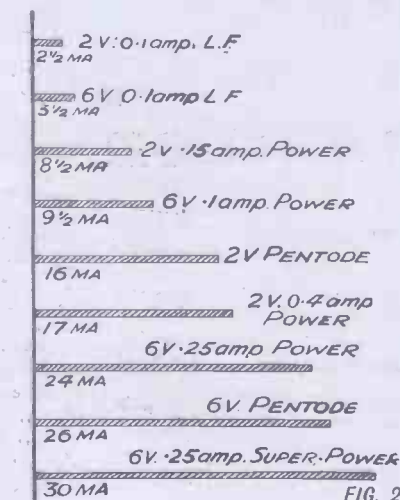 2V:0·1amp. L.F
2½ MA
6V 0·1amp L F
5½ MA
2V ·15amp. POWER
8½ MA
6V ·1amp. POWER
9½ MA
2V PENTODE
16 MA
2V. 0·4 amp
POWER
17 MA
6V ·25amp POWER
24 MA
6V. PENTODE
26 MA
6V. ·25amp. SUPER·POWER
30 MA
FIG. 2